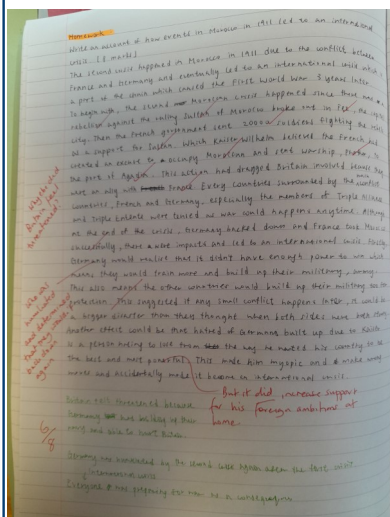 Homework
Write an account of how events in Morocco in 1911 led to an international
crisis. [8 marks]
The second crisis happened in Morocco in 1911 due to the conflict between
France and Germany and eventually led to an international crisis which
a part of the which caused the First World War 3 years later.
To begin with, the second Moroccan crisis happened since there was a
rebellion against the ruling Sultan of Morocco broke out in Fez, the
city. Then the French government sent 20000 soldiers fighting the
as a support for Sultan. Which Kaiser Wilhelm believed the French had
created an excuse to occupy Moroccan and sent warship, Panther, to
the port of Agadir. This action had dragged Britain involved because they
were an ally with France. Every countries surrounded by the conflict
countries, French and Germany, especially the members of Triple Alliance
and Triple Entente were tensed as war would happens anytime. Although
at the end of the crisis, Germany backed down and France took Morocco
successfully, there were impacts and led to an international crisis. Firstly,
Germany would realise that it didn't have enough power to win which
means they would train more and build up their military, army.
This also means the other would build up their military too for
protection. This suggested if any small conflict happens later, it would be
a bigger disaster than they thought when both sides have both
Another effect could be that hatred of Germans built up due to Kaiser
is a person hating to lose from the way he wanted his country to be
the best and most powerful. This made him myopic and make many
moves and accidentally make it become an international crisis.
Why else did
Britain feel
threatened?
Who was
humiliated
and determined
that they would
back down
again?
But it did increase support
for his foreign ambitions at
home.
6/8
Britain felt threatened because
Germany was building up their
navy and able to
Germany was humiliated by the
international crisis
Everyone was preparing for war as a consequence